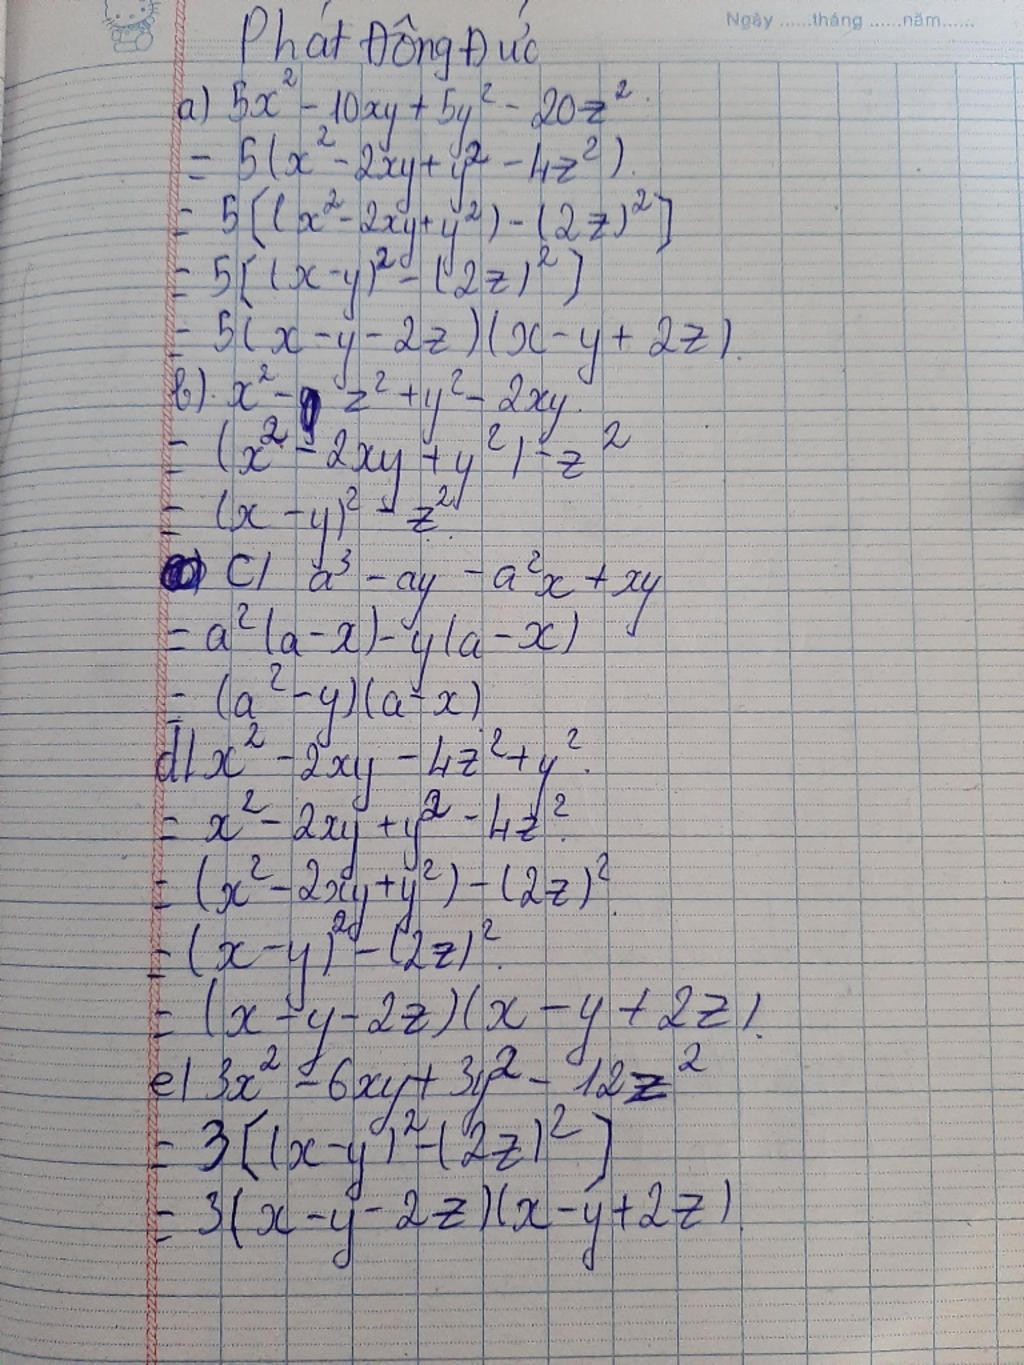 Ngày ......tháng ......năm......
Phát Đông Đức
a) 5x² - 10xy + 5y² - 20z²
= 5(x² - 2xy + y² - 4z²).
= 5[(x² - 2xy + y²) - (2z)²]
= 5[(x - y)² - (2z)²]
= 5(x - y - 2z)(x - y + 2z).
b). x² - z² + y² - 2xy.
= (x² - 2xy + y²) - z²
= (x - y)² - z².
c) a³ - ay - a²x + xy
= a²(a - x) - y(a - x)
= (a² - y)(a - x)
d) x² - 2xy - 4z² + y².
= x² - 2xy + y² - 4z².
= (x² - 2xy + y²) - (2z)².
= (x - y)² - (2z)².
= (x - y - 2z)(x - y + 2z).
e) 3x² - 6xy + 3y² - 12z²
= 3[(x - y)² - (2z)²]
= 3(x - y - 2z)(x - y + 2z).